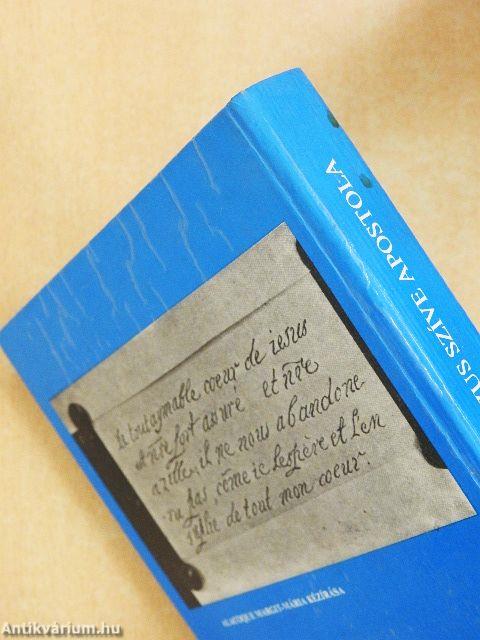 US SZÍVE APOSTOLA
Le tout aymable coeur de iesus
est nr̃e fort assure et nr̃e
azille, il ne nous abandone
ra pas, côme ie l'espère et l'en
suplie de tout mon coeur.
ALACOQUE MARGIT-MÁRIA KÉZÍRÁSA
Antikvárium.hu